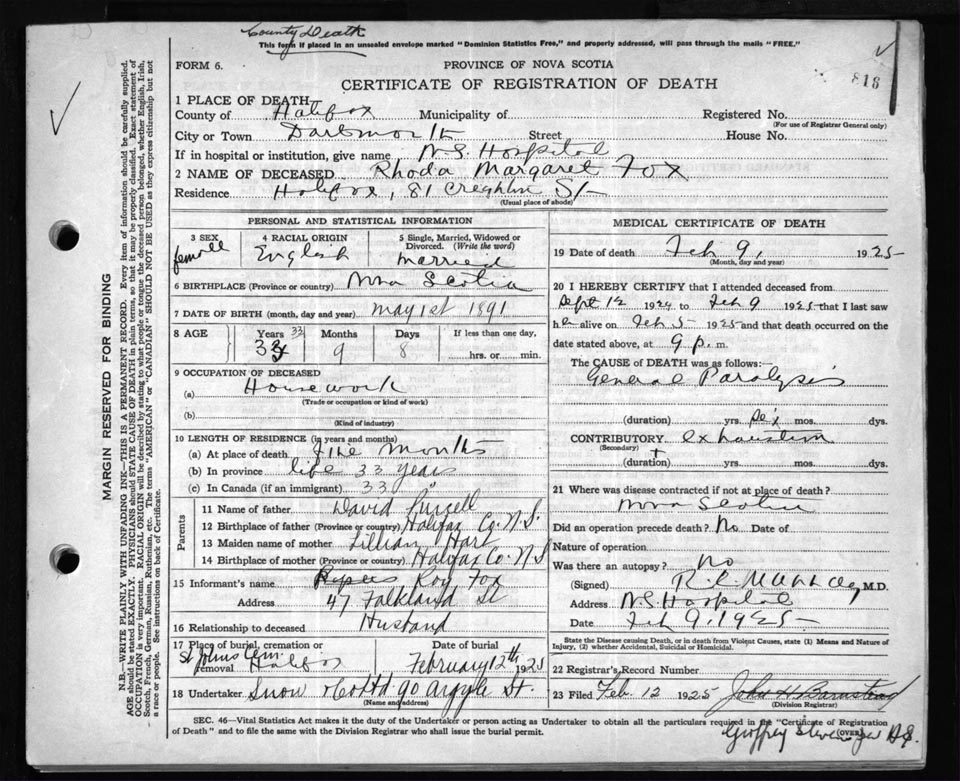 County Death
This form if placed in an unsealed envelope marked "Dominion Statistics Free," and properly addressed, will pass through the mails "FREE."
FORM 6.
PROVINCE OF NOVA SCOTIA
CERTIFICATE OF REGISTRATION OF DEATH
818
1 PLACE OF DEATH
County of Halifax Municipality of Registered No.
(For use of Registrar General only)
City or Town Dartmouth Street House No.
If in hospital or institution, give name N.S. Hospital
2 NAME OF DECEASED Rhoda Margaret Fox
Residence Halifax, 81 Creighton St
(Usual place of abode)
PERSONAL AND STATISTICAL INFORMATION
3 SEX 4 RACIAL ORIGIN 5 Single, Married, Widowed or Divorced. (Write the word)
female English married
6 BIRTHPLACE (Province or country) Nova Scotia
7 DATE OF BIRTH (month, day and year) May 1st 1891
8 AGE Years Months Days If less than one day,
33 9 8 hrs. or min.
9 OCCUPATION OF DECEASED
(a) Housework
(Trade or occupation or kind of work)
(b)
(Kind of industry)
10 LENGTH OF RESIDENCE (in years and months)
(a) At place of death five months
(b) In province life 33 years
(c) In Canada (if an immigrant) 33 "
Parents
11 Name of father David Purcell
12 Birthplace of father (Province or country) Halifax Co. N.S.
13 Maiden name of mother Lillian Hart
14 Birthplace of mother (Province or country) Halifax Co. N.S
15 Informant's name Roy Fox
Address 47 Falkland St
16 Relationship to deceased Husband
17 Place of burial, cremation or removal St Johns Cem Halifax February 12th 1925
18 Undertaker Snow & Co Ltd 90 Argyle St.
(Name and address)
MEDICAL CERTIFICATE OF DEATH
19 Date of death Feb 9, 1925
(Month, day and year)
20 I HEREBY CERTIFY that I attended deceased from
Sept 12 1924 to Feb 9 1925 that I last saw
her alive on Feb 5 1925 and that death occurred on
date stated above, at 9 p. m.
The CAUSE OF DEATH was as follows:
General Paralysis
(duration) yrs. six mos. dys.
CONTRIBUTORY. exhaustion
(Secondary)
(duration) yrs. mos. dys.
21 Where was disease contracted if not at place of death?
Nova Scotia
Did an operation precede death? No Date of
Nature of operation
Was there an autopsy? no
(Signed) M.D.
Address N.S Hospital
Date Feb 9, 1925
State the Disease causing Death, or in death from Violent Causes, state (1) Means and Nature of Injury, (2) whether Accidental, Suicidal or Homicidal.
22 Registrar's Record Number
23 Filed Feb. 12 1925 John H Barnstead
(Division Registrar)
SEC. 46—Vital Statistics Act makes it the duty of the Undertaker or person acting as Undertaker to obtain all the particulars required in the "Certificate of Registration
of Death" and to file the same with the Division Registrar who shall issue the burial permit.
(OVER)
MARGIN RESERVED FOR BINDING
N.B.—WRITE PLAINLY WITH UNFADING INK—THIS IS A PERMANENT RECORD. Every item of information should be carefully supplied.
AGE should be stated EXACTLY. PHYSICIANS should STATE CAUSE OF DEATH in plain terms, so that it may be properly classified. Exact statement of
OCCUPATION is very important. RACIAL ORIGIN will be described by stating to what people or tongue the deceased person belonged, whether English, Irish,
Scotch, French, German, Russian, Ruthenian, etc. The terms "AMERICAN" or "CANADIAN" SHOULD NOT BE USED as they express citizenship but not
a race or people. See instructions on back of Certificate.